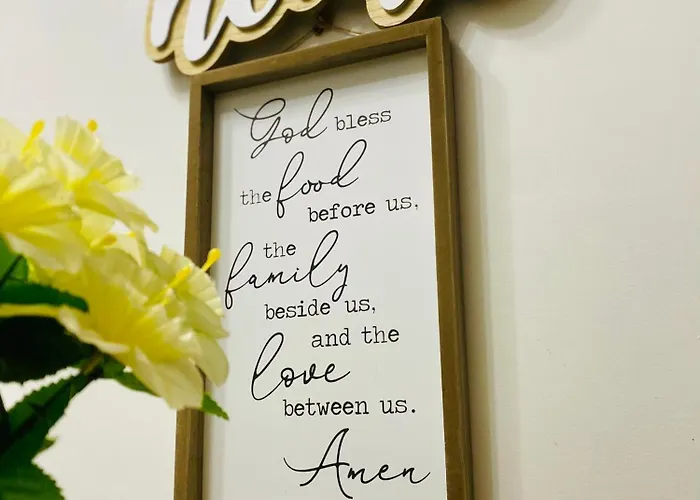 God bless
the food
before us,
the
family
beside us,
and the
love
between us.
Amen